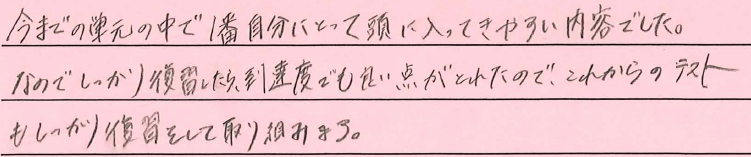 今までの単元の中で1番自分にとって頭に入ってきやすい内容でした。
なのでしっかり復習したら、到達度でも良い点がとれたので、これからのテスト
もしっかり復習をして取り組みます。